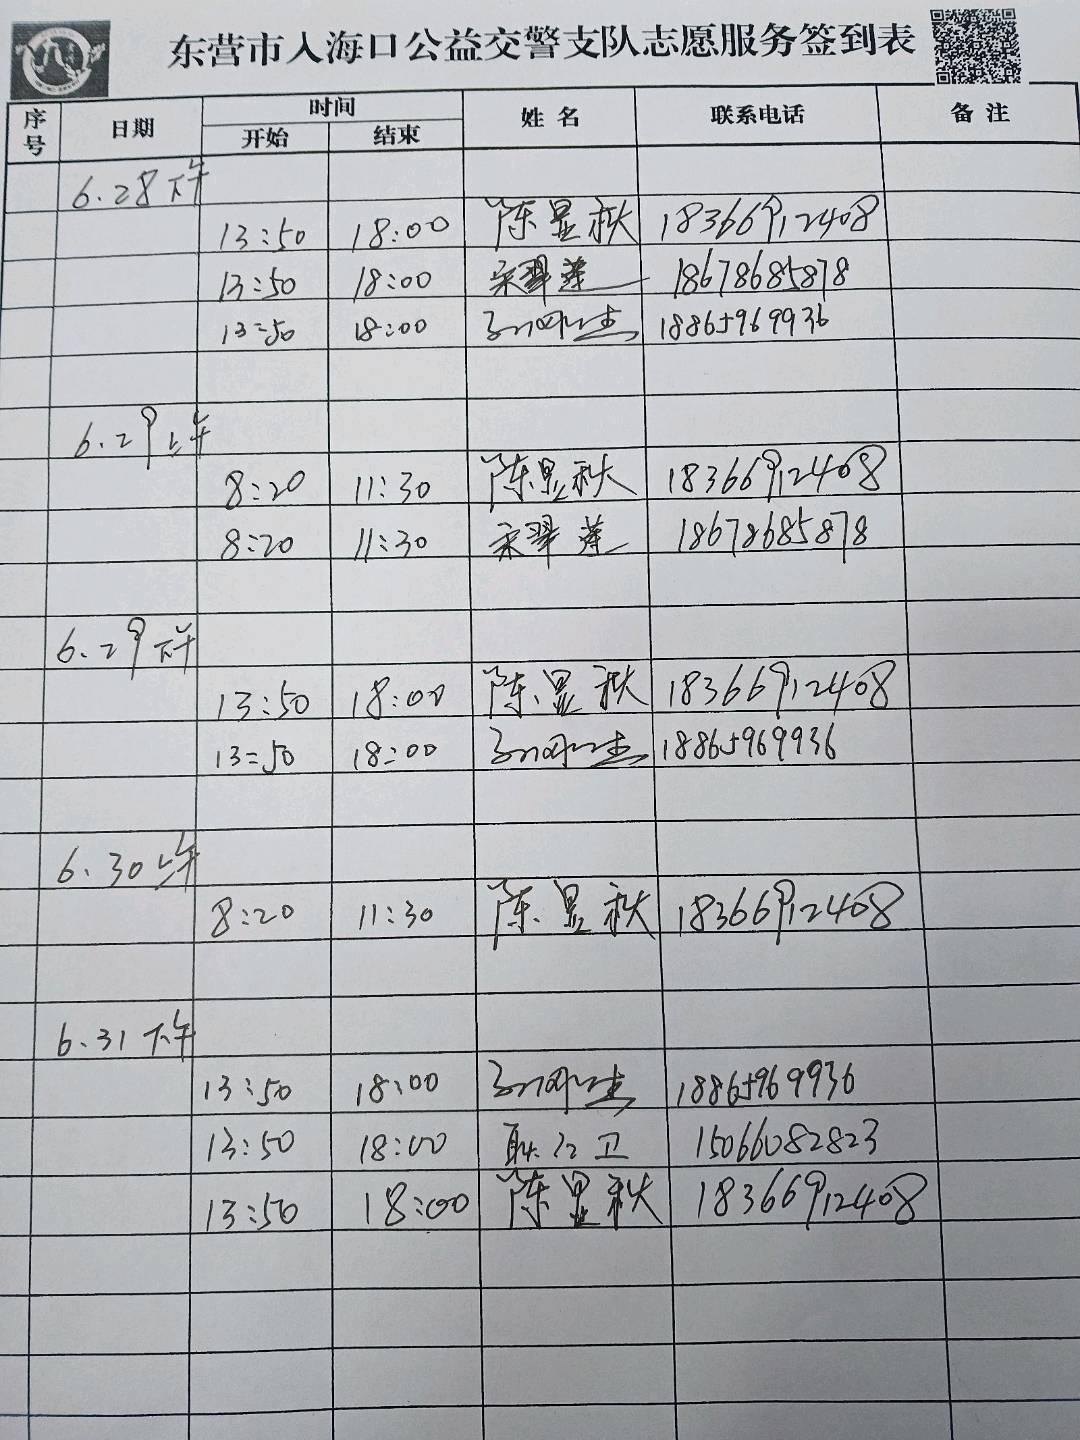 东营市入海口公益交警支队志愿服务签到表
序号 日期 时间 姓名 联系电话 备注
开始 结束
6.28下午
13:50 18:00 陈显秋 18366912408
13:50 18:00 宋翠莲 18678685878
13:50 18:00 18865969936
6.29上午
8:20 11:30 陈显秋 18366912408
8:20 11:30 宋翠莲 18678685878
6.29下午
13:50 18:00 陈显秋 18366912408
13:50 18:00 18865969936
6.30上午
8:20 11:30 陈显秋 18366912408
6.31下午
13:50 18:00 18865969936
13:50 18:00 耿红卫 15066082823
13:50 18:00 陈显秋 18366912408